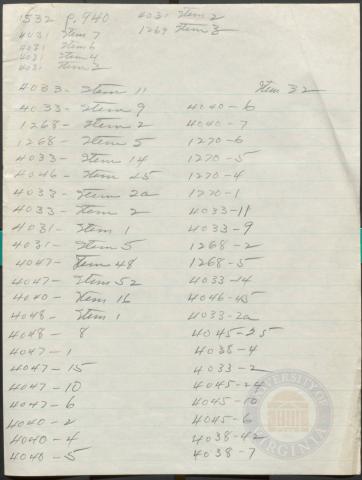 1532 p. 940
4031 Item 7
4031 Item 6
4031 Item 4
4031 Item 2
4031 Item 2
1269 Item 3
4033 - Item 11
4033 - Item 9
1268 - Item 2
1268 - Item 5
4033 - Item 14
4046 - Item 45
4033 - Item 2a
4033 - Item 2
4031 - Item 1
4031 - Item 5
4047 - Item 48
4047 - Item 52
4040 - Item 16
4048 - Item 1
4048 - 8
4047 - 1
4047 - 15
4047 - 10
4047 - 6
4040 - 2
4040 - 4
4048 - 5
Item 32
4040 - 6
4040 - 7
1270 - 6
1270 - 5
1270 - 4
1270 - 1
4033 - 11
4033 - 9
1268 - 2
1268 - 5
4033 - 14
4046 - 45
4033 - 2a
4045 - 25
4038 - 4
4033 - 2
4045 - 24
4045 - 10
4045 - 6
4038 - 42
4038 - 7
UNIVERSITY OF VIRGINIA